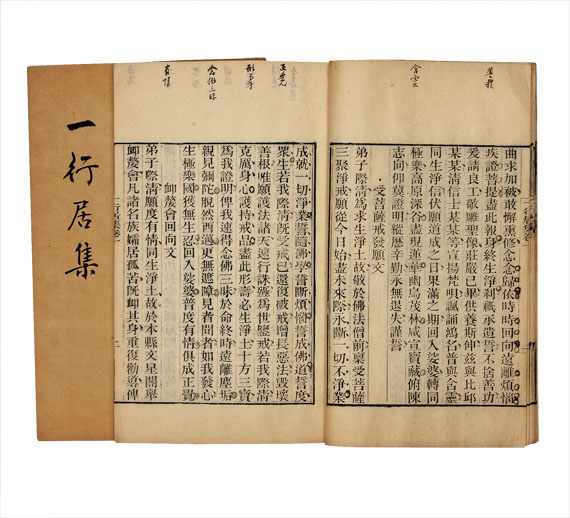 曲求加被敢懈熏修念念歸依時時回向遠離煩惱
疾證菩提盡此報身終生淨刹祇承遺誓不捨善功
爰請良工敬雕聖像莊嚴已畢供養斯伸茲與比邱
某某清信士某某等宣揚梵唄諷誦鴻名普與含靈
同生淨信伏願道成之日果滿之期回入娑婆轉同
極樂高原深谷盡現蓮華幽鳥茂林咸宣寶藏俯陳
志向仰冀證明縱歷辛勤永無退失謹誓
受菩薩戒發願文
弟子際清為求生淨土故敬於佛法僧前稟受菩薩
三聚淨戒願從今日始盡未來際永斷一切不淨業
正覺
形壽
念佛三昧
成就一切淨業誓隨佛學誓斷煩惱誓成佛道誓度
眾生若我際清既受戒已還復破戒增長惡法毀壞
善根唯願護法諸天速行誅殛為世鑒戒若我際清
克厲身心護持戒品盡此形壽必生淨土十方三寶
為我證明俾我速得念佛三昧於命終時遠離塵垢
親見彌陀脫然西邁更無遮障見者聞者如我發心
生極樂國獲無生忍回入娑婆普度有情俱成正覺
卹嫠會回向文
弟子際清願度有情同生淨土故於本縣文星閣舉
卹嫠會凡諸名族孀居孤苦既卹其身重復勸導俾
一行居集卷一
二
一行居集